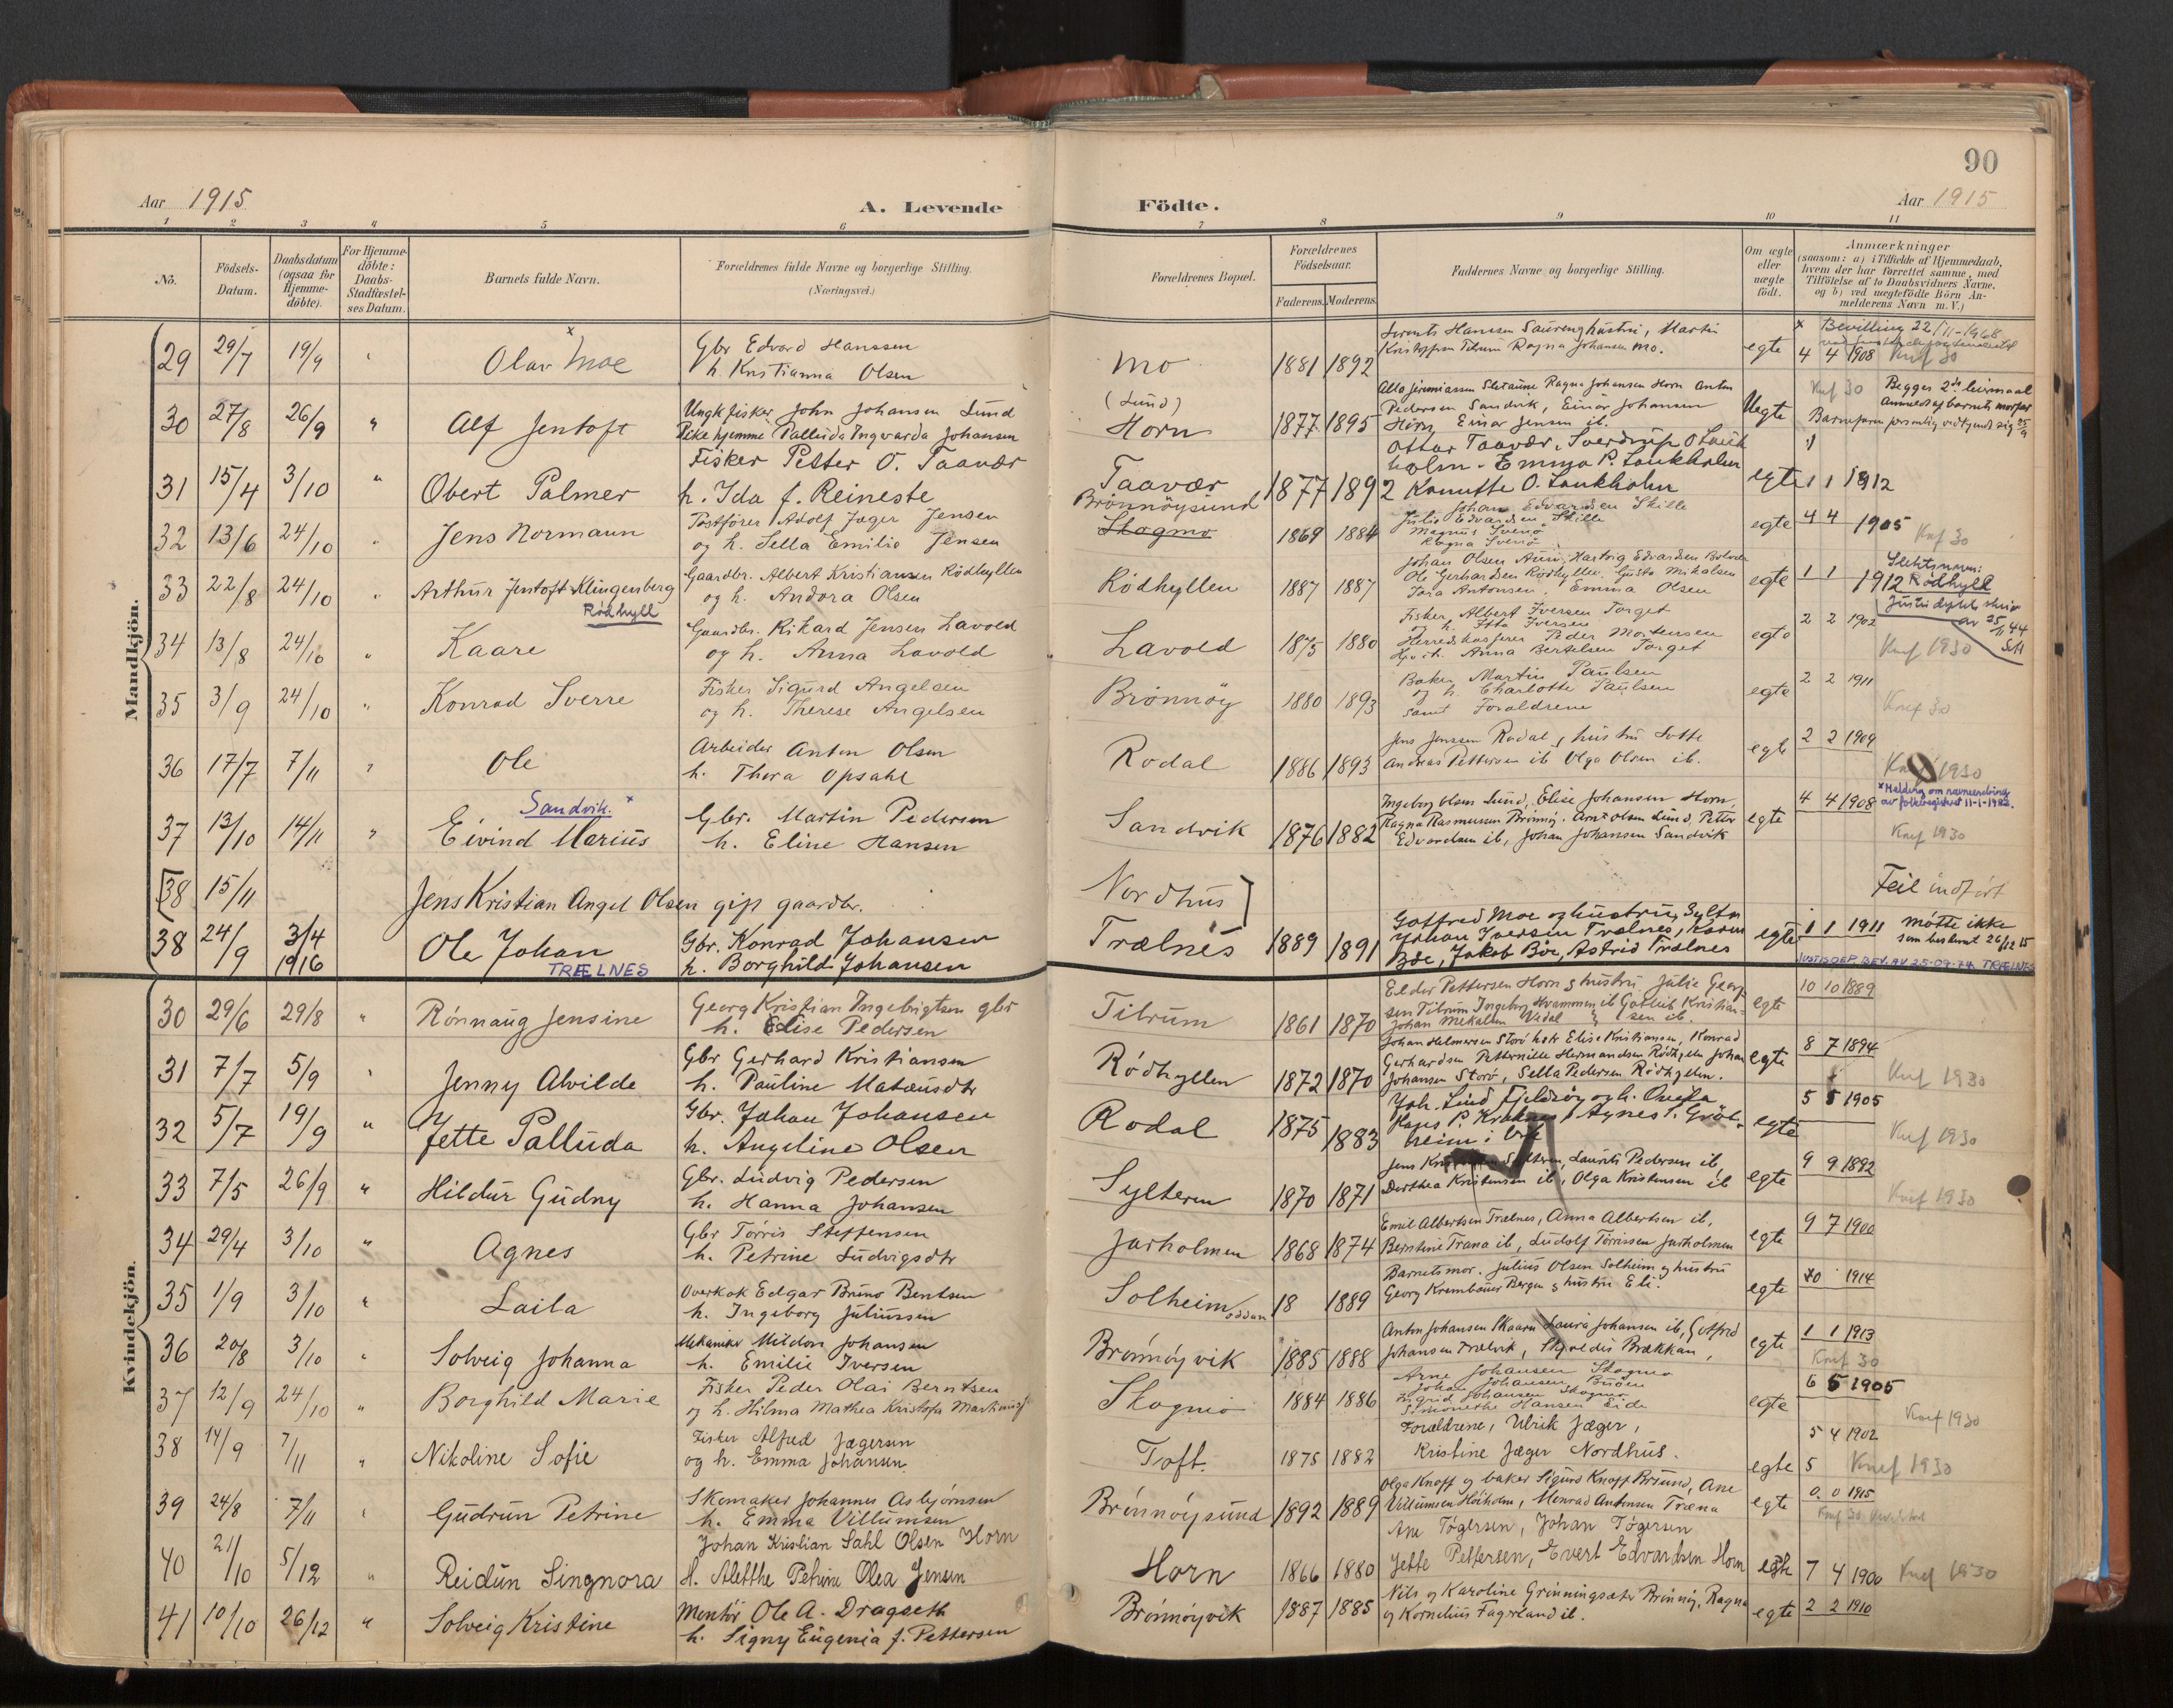 90
Aar 1915 A. Levende Födte. Aar 1915
1 2 3 4 5 6 7 8 9 10 11
No.
Födsels-
Datum.
Daabsdatum
(ogsaa for
Hjemme-
döbte).
For Hjemme-
döbte:
Daabs-
Stadfæstel-
ses Datum.
Barnets fulde Navn.
Forældrenes fulde Navne og borgerlige Stilling.
(Næringsvei.)
Forældrenes Bopæl.
Forældrenes
Födselsaar.
Faderens. Moderens.
Faddernes Navne og borgerlige Stilling.
Om ægte
eller
uægte
födt.
Anmærkninger
(saasom: a) i Tilfælde af Hjemmedaab,
hvem der har forrettet samme, med
Tilföielse af to Daabsvidners Navne.
og b) ved uægtefödte Börn An-
melderens Navn m. V.)
Mandkjön.
29 29/7 19/9 " Olav Moe x
Gbr Edvard Hanssen
h. Kristianna Olsen
Mo 1881 1892
Hanssen Saureng hustru, Martin
Kristoffersen Tilrum Ragna Johansen Mo.
egte 4 4 1908 Knf 30
x Bevilling 22/11-1968
30 27/8 26/9 " Alf Jentoft
Ungk fisker John Johansen Lund
Pike hjemme Palleuda Ingvarda Johansen
(Lund)
Horn 1877 1895
Ragna Johansen Horn Anton
Pedersen Sandvik, Einar Johansen
Horn, Einar Jensen ib.
Uegte Knf 30 Begges 2det leiermaal
Anmeldt af barnets morfar
Barnefaren personlig vedkjendt sig 25/9
31 15/4 3/10 " Obert Palmer
Fisker Petter O. Taavær
h. Ida f. Reineste
Taavær 1877 1892
Ottar Taavær, Sverdrup O Lauk
holm - Emma P. Laukholm
Kanutte O. Laukholm
egte 1 1 1912
32 13/6 24/10 " Jens Normann
Postfører Adolf Jæger Jensen
og h. Sella Emilie Jensen
Brønnøysund
Skogmo 1869 1884
Johan Edvardsen Skille
Julie Edvardsen Skille
Magnus Svenø
Ragna Svenø
egte 4 4 1905 Knf 30
33 22/8 24/10 " Arthur Jentoft Klingenberg
Rødhyll
Gaardbr. Albert Kristiansen Rödhyllen
og h. Andora Olsen
Rödhyllen 1887 1887
Johan Olsen Aune, Hartvig Edvardsen
Ole Gerhardsen Rödhyllen. Gusta Mikalsen
Tora Antonsen, Emma Olsen
egte 1 1 1912
Slektsnavn:
Rødhyll
34 13/8 24/10 " Kaare
Gaardbr. Rikard Jensen Lavold
og h. Anna Lavold
Lavold 1875 1880
Fisker Albert Iversen Torget
og h. Iversen
Herredskasserer Peder Mortensen
Anna Bertelsen Torget
egte 2 2 1902 Knf 1930
35 3/9 24/10 " Konrad Sverre
Fisker Sigurd Angelsen
og h. Therese Angelsen
Brønnøy 1880 1893
Baker Martin Paulsen
og h. Charlotte Paulsen
samt Forældrene
egte 2 2 1911 Knf 30
36 17/7 7/11 " Ole
Arbeider Anton Olsen
h. Thora Opsahl
Rodal 1886 1893
Jens Jenssen Rodal, hustru Lotte
Andreas Pettersen ib Olga Olsen ib.
egte 2 2 1909 Knf 1930
37 13/10 14/11 " Eivind Marius
Sandvik. x
Gbr. Martin Pedersen
h. Eline Hansen
Sandvik 1876 1882
Ingeborg Olsen Lund, Elise Johansen Horn,
Ragna Rasmussen Brönnöy. Arnt Olsen Lund, Petter
Edvardsen ib, Johan Johansen Sandvik
egte 4 4 1908
x Melding om navneendring
av folkeregistret 11-1-1982.
Knf 1930
[38 15/11 Jens Kristian Angel Olsen gift gaardbr. Nordhus] Feil indfört
38 24/9 3/4 1916 Ole Johan
TRÆLNES
Gbr. Konrad Johansen
h. Borghild Johansen
Trælnes 1889 1891
Gotfred Moe og hustru, Syltern
Johan Iversen Trælnes, Karen
Böe, Jakob Böe, Astrid Trælnes
egte 1 1 1911 mötte ikke
som bestemt 26/12 15
JUSTISDEP. BEV. AV 25-09-74 TRÆLNES
Kvindekjön.
30 29/6 29/8 " Rönnaug Jensine
Georg Kristian Ingebrigtsen gbr
h. Elise Pedersen
Tilrum 1861 1870
Eldor Pettersen Horn & hustru Julie Georg
sen Tilrum Ingeborg Hvammen ib Gotlieb Kristian-
Johan Mikalsen sen ib.
egte 10 10 1889
31 7/7 5/9 " Jenny Alvilde
Gbr Gerhard Kristiansen
h. Pauline Matæusdtr
Rödhyllen 1872 1870
Johan Helmersen Storö Elise Kristiansen, Konrad
Gerhardsen Petternille Hermandsen Rödhyllen Johan
Johansen Storö, Sella Pedersen Rödhyllen.
egte 8 7 1894 Knf 1930
32 5/7 19/9 " Jette Palluda
Gbr. Johan Johansen
h. Angeline Olsen
Rodal 1875 1883
Joh. Lind Fjeldsöy og h.
Hans P. Agnes
heim i
egte 5 5 1905 Knf 1930
33 7/5 26/9 " Hildur Gudny
Gbr. Ludvig Pedersen
h. Hanna Johansen
Sylteren 1870 1871
Jens Sylteren, Laurits Pedersen ib,
Dorthea Kristensen ib, Olga Kristensen ib
egte 9 9 1892 Knf 1930
34 29/4 3/10 " Agnes
Gbr Törris Steffensen
h. Petrine Ludvigsdtr
Jarholmen 1868 1874
Emil Albertsen Trælnes, Anna Albertsen ib,
Berntine Trana ib, Ludolf Törrissen Jarholmen
egte 9 7 1900
35 1/9 3/10 " Laila
Overkok Edgar Bruno Bentsen
h. Ingeborg Juliussen
Solheim 18 1889
Barnets mor. Julius Olsen Solheim og hustru
Georg Krembauer Bergen & hustru Eli.
egte 1914
36 20/8 3/10 " Solveig Johanna
Mekaniker Meldor Johansen
h. Emilie Iversen
Brönnöyvik 1885 1888
Anton Johansen Skaaren Laura Johansen ib, Gotfred
Johansen Trælvik, Brækkan,
egte 1 1 1913
Knf 30
37 12/9 24/10 " Borghild Marie
Fisker Peder Olai Berntsen
og h. Hilma Mathea Kristofa
Skogmo 1884 1886
Arne Johansen Skogmo
Johan Johansen
Sigrid Johansen Skogmo
Hansen Eide
egte 6 5 1905 Knf 1930
38 14/9 7/11 " Nikoline Sofie
Fisker Alfred Jægersen
og h. Emma Johansen
Toft. 1875 1882
Forældrene, Ulrik Jæger,
Kristine Jæger Nordhus.
egte 5 4 1902
5 Knf 1930
39 24/8 7/11 " Gudrun Petrine
Skomaker Johannes Asbjörnsen
h. Emma Villumsen
Brönnöysund 1892 1889
Olga Knoff og baker Sigurd Knoff Brsund, Ane
Villumsen Höiholm, Monrad Antonsen Træna
egte 0. 0 1915
40 21/10 5/12 " Reidun Singnora
Johan Kristian Sahl Olsen Horn
H. Aletthe Petrine Olea Jensen
Horn 1866 1880
Ane Tögersen, Johan Tögersen
Jette Pettersen, Evert Edvardsen Horn
egte 7 4 1900 Knf 1930
41 10/10 26/12 " Solveig Kristine
Montör Ole A. Dragseth
h. Signy Eugenia f. Pettersen
Brönnöyvik 1887 1885
Nils og Karoline Grönningsæter Brönnöy, Ragna
og Kornelius Fagerland ib.
egte 2 2 1910